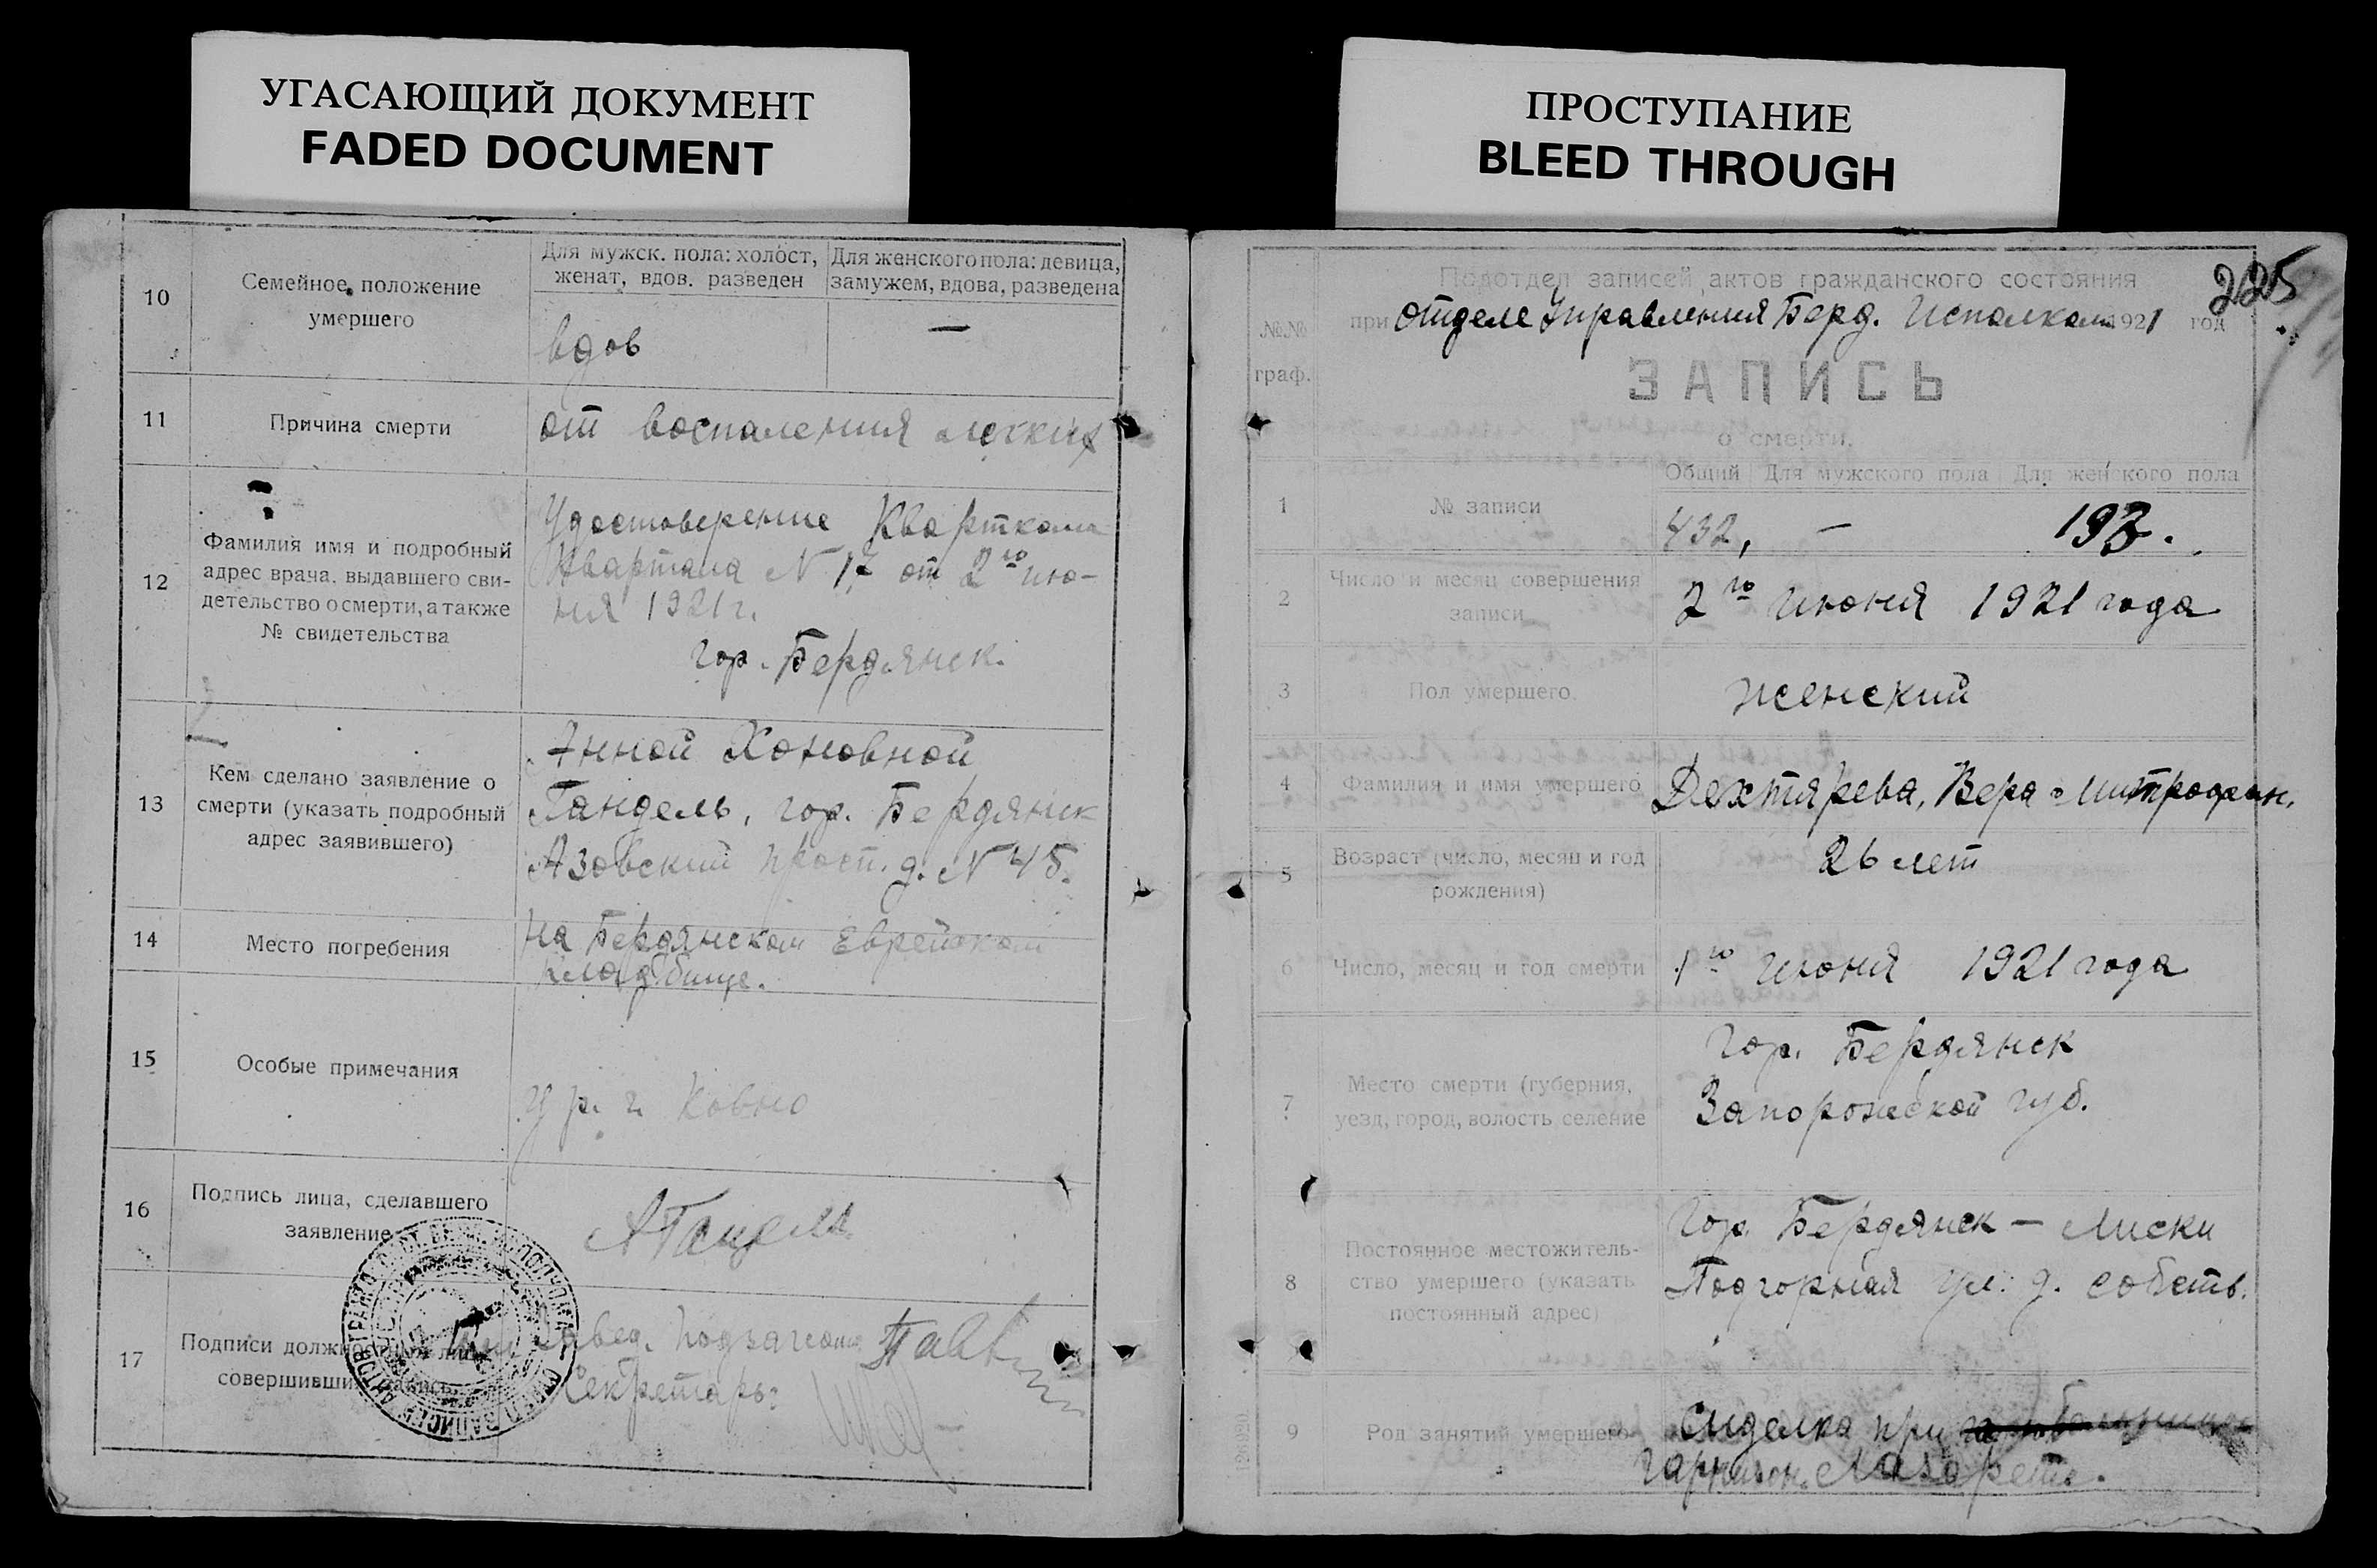 УГАСАЮЩИЙ ДОКУМЕНТ
FADED DOCUMENT
10
Семейное положение
умершего
Для мужск. пола: холост,
женат, вдов. разведен
Для женского пола: девица,
замужем, вдова, разведена
вдов
—
11
Причина смерти
от воспаления легких
12
Фамилия имя и подробный
адрес врача, выдавшего сви-
детельство о смерти, а также
№ свидетельства
Удостоверение Кварткома
Квартала N 17 от 2го ию-
ня 1921 г.
гор. Бердянск.
13
Кем сделано заявление о
смерти (указать подробный
адрес заявившего)
Анной Хоновной
Гандель, гор. Бердянск
Азовский просп. д. N 45.
14
Место погребения
на Бердянском Еврейском
кладбище.
15
Особые примечания
Ур. г. Ковно
16
Подпись лица, сделавшего
заявление
АГандель
17
Подписи должностных лиц
совершивших запись
Завед. Подзагсом
Секретарь:
ПРОСТУПАНИЕ
BLEED THROUGH
225
Подотдел записей актов гражданского состояния
при отделе Управления Берд. Исполкома 1921 год
№№
граф.
ЗАПИСЬ
о смерти.
Общий
Для мужского пола
Для женского пола
1
№ записи
432, — 193.
2
Число и месяц совершения
записи
2го Июня 1921 года
3
Пол умершего
Женский
4
Фамилия и имя умершего
Дехтярева, Вера Митрофан.
5
Возраст (число, месяц и год
рождения)
26 лет
6
Число, месяц и год смерти
1го Июня 1921 года
7
Место смерти (губерния,
уезд, город, волость селение
Гор. Бердянск
Запорожской губ.
8
Постоянное местожитель-
ство умершего (указать
постоянный адрес)
Гор. Бердянск — Лиски
Подгорная ул. д. собств.
9
Род занятий умершего
Сиделка при
Гарнизон. Лазарете.